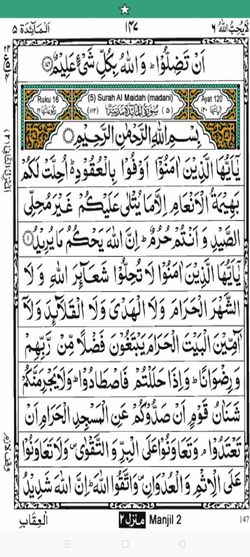 لَا يُحِبُّ اللّٰهُ ٦ ١٤٧ اَلْمَآئِدَة ٥
اَنْ تَضِلُّوْا ؕ وَاللّٰهُ بِكُلِّ شَیْءٍ عَلِیْمٌ
Ruku 16 (5) Surah Al Maidah (madani) Ayat 120
بِسْمِ اللّٰهِ الرَّحْمٰنِ الرَّحِیْمِ
یٰۤاَیُّهَا الَّذِیْنَ اٰمَنُوْۤا اَوْفُوْا بِالْعُقُوْدِ ؕ اُحِلَّتْ لَكُمْ
بَهِیْمَةُ الْاَنْعَامِ اِلَّا مَا یُتْلٰی عَلَیْكُمْ غَیْرَ مُحِلِّی
الصَّیْدِ وَ اَنْتُمْ حُرُمٌ ؕ اِنَّ اللّٰهَ یَحْكُمُ مَا یُرِیْدُ
یٰۤاَیُّهَا الَّذِیْنَ اٰمَنُوْا لَا تُحِلُّوْا شَعَآئِرَ اللّٰهِ وَ لَا
الشَّهْرَ الْحَرَامَ وَلَا الْهَدْیَ وَلَا الْقَلَآئِدَ وَلَاۤ
آٰمِّیْنَ الْبَیْتَ الْحَرَامَ یَبْتَغُوْنَ فَضْلًا مِّنْ رَّبِّهِمْ
وَرِضْوَانًا ؕ وَاِذَا حَلَلْتُمْ فَاصْطَادُوْا ؕ وَلَا یَجْرِمَنَّكُمْ
شَنَاٰنُ قَوْمٍ اَنْ صَدُّوْكُمْ عَنِ الْمَسْجِدِ الْحَرَامِ اَنْ
تَعْتَدُوْا ۘ وَتَعَاوَنُوْا عَلَی الْبِرِّ وَالتَّقْوٰی ۪ وَلَا تَعَاوَنُوْا
عَلَی الْاِثْمِ وَ الْعُدْوَانِ ۪ وَاتَّقُوا اللّٰهَ ؕ اِنَّ اللّٰهَ شَدِیْدُ
الْعِقَابِ مَنْزِل ٢ Manjil 2 147